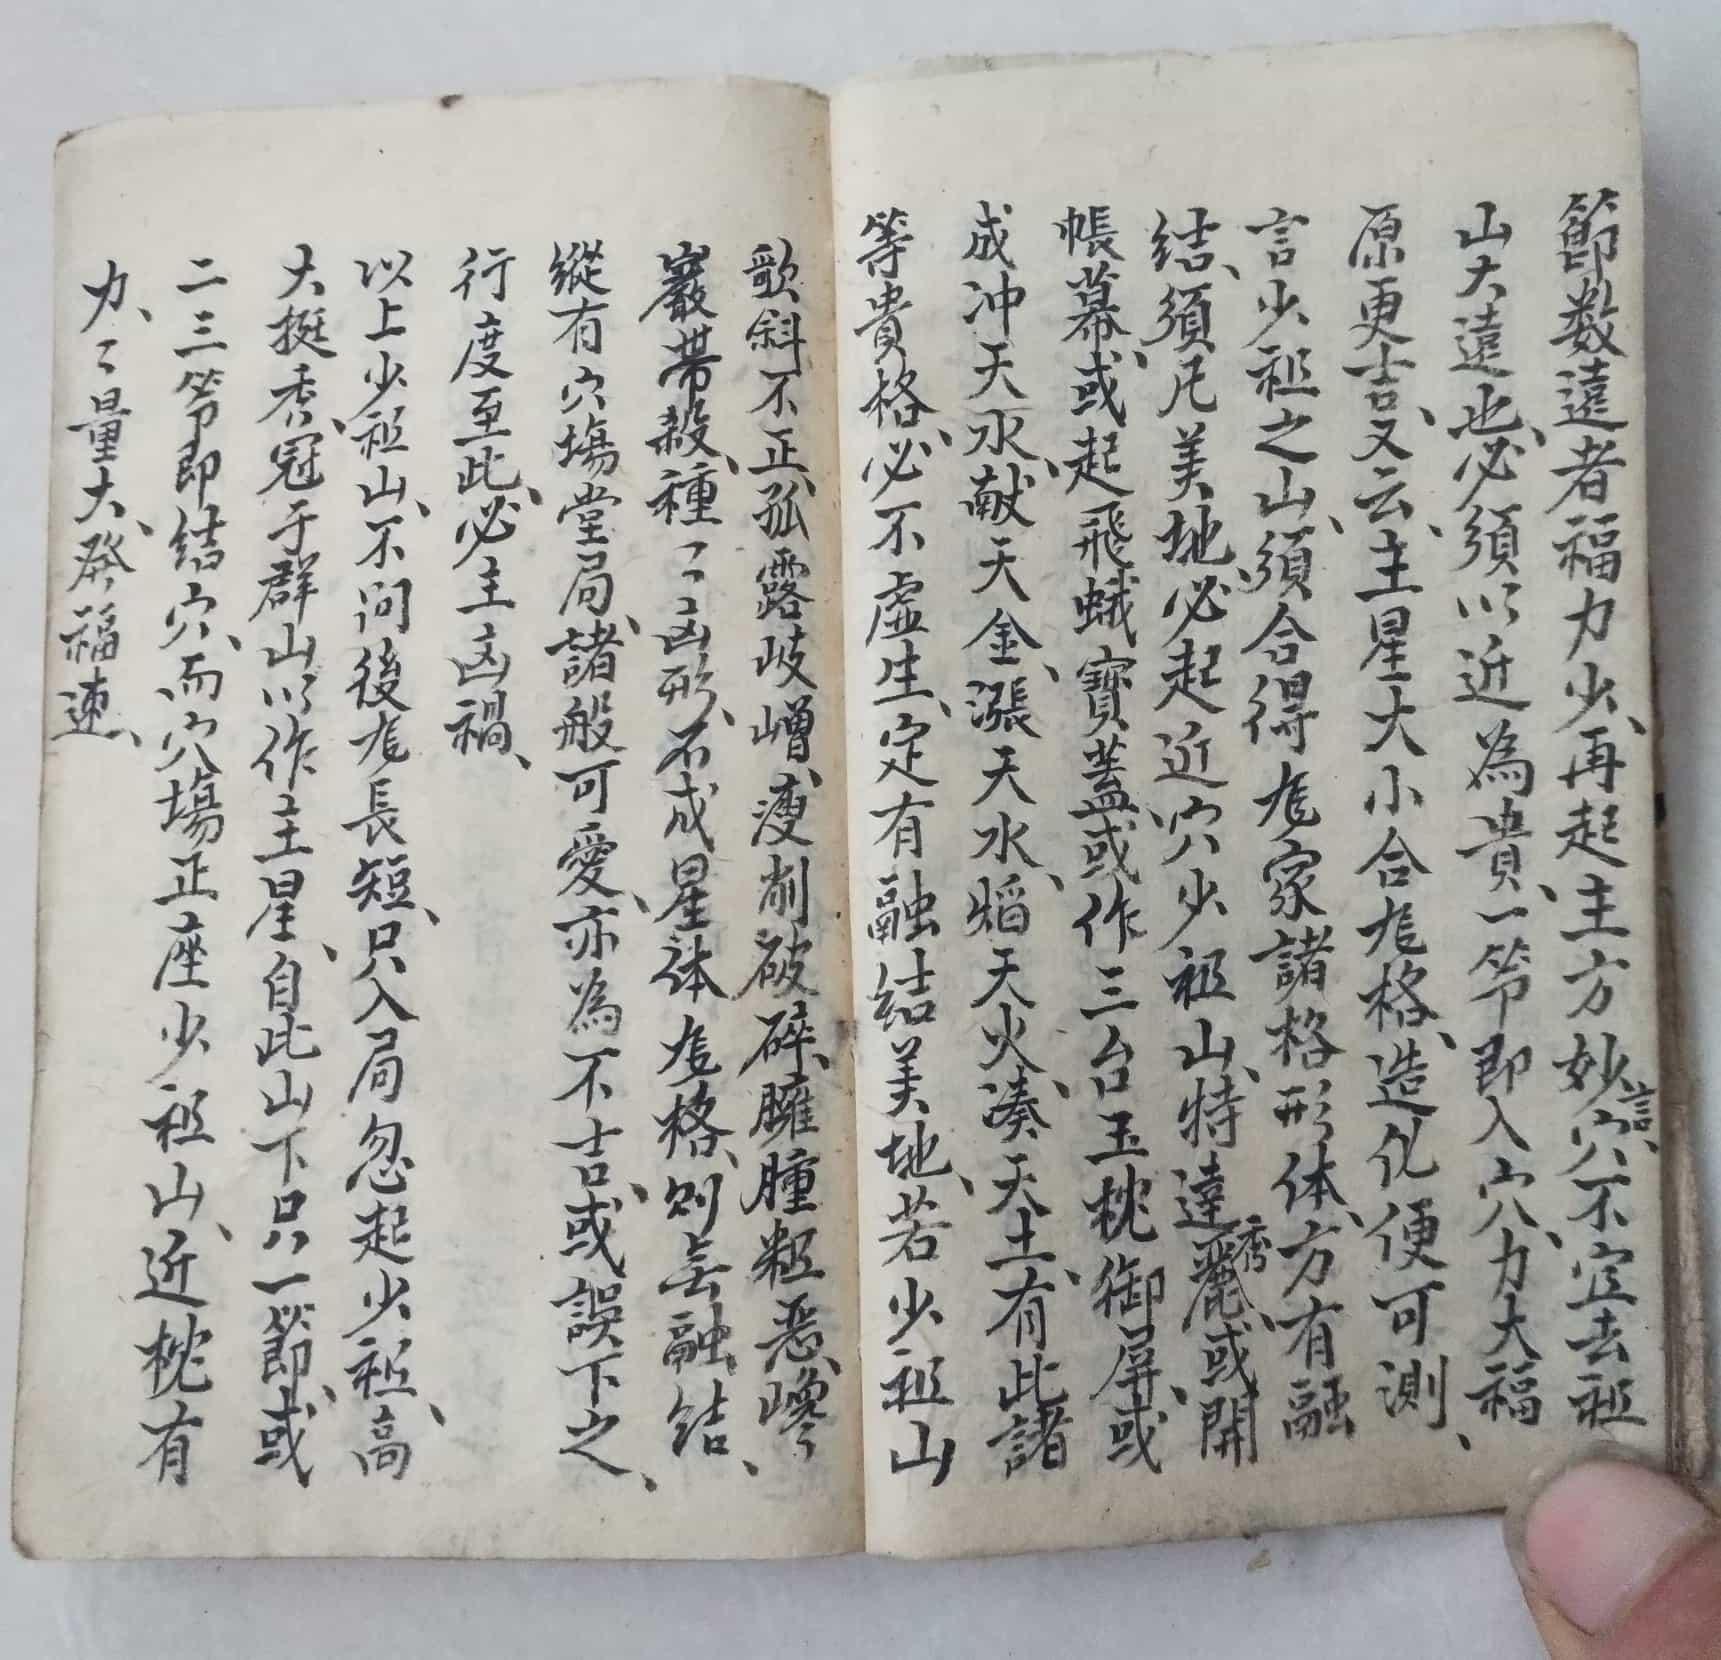 節数遠者福力少、再起主方妙、言穴不宜去祖
山大遠也、必須以近為貴、一節即入穴、力大福
原更吉、又云、主星大小合龙格、造化便可測、
言少祖之山、須合得龙家諸格形体、方有融
結、須凡美地、必起近穴少祖山、特達秀麗、或開
帳幕、或起飛蛾寶蓋、或作三台玉枕御屏、或
成冲天水、献天金、漲天水、焰天火、湊天土、有此諸
等貴格、必不虛生、定有融結美地、若少祖山
歌斜不正、孤露岐嶒、瘦削破碎、臃腫粗恶、巉
巖帶殺、種〻凶形、不成星体龙格、则无融結、
縱有穴塲堂局、諸般可愛、亦為不吉、或誤下之、
行度至此、必主凶禍、
以上少祖山、不问後龙長短、只入局忽起少祖、高
大挺秀、冠于群山以作主星、自此山下只一節、或
二三節即結穴、而穴塲正座少祖山、近枕有
力、〻量大、發福速、